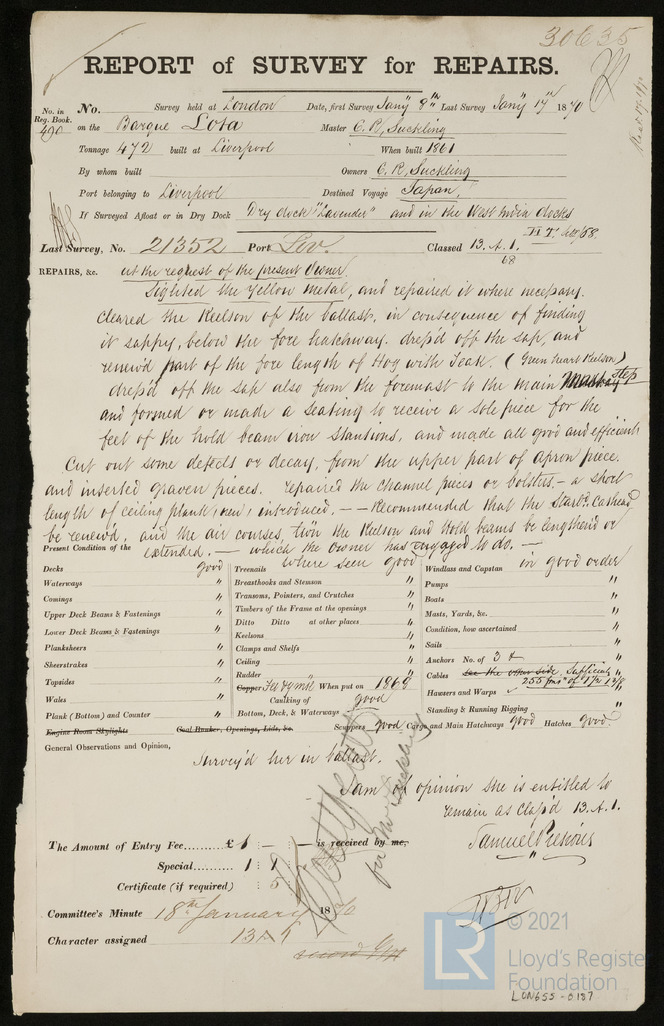 30635
REPORT of SURVEY for REPAIRS.
No. in Reg. Book. 490
No. Survey held at London Date, first Survey Jany 9th Last Survey Jany 17th 1870
on the Barque Lota Master C. R. Suckling
Tonnage 472 built at Liverpool When built 1861
By whom built Owners C. R. Suckling
Port belonging to Liverpool Destined Voyage Japan.
If Surveyed Afloat or in Dry Dock Dry dock "Lavender" and in the West India docks
Last Survey, No. 21352 Port Liv. Classed 13. A. 1.
68
REPAIRS, &c. at the request of the present Owner.
Sighted the Yellow Metal, and repaired it where necessary.
Cleared the Keelson of the ballast, in consequence of finding
it sappy, below the fore hatchway. drep'd off the sap, and
renew'd part of the fore length of Hog with Teak. (Green heart Keelson)
drep'd off the sap also from the foremast to the main step
and formed or made a seating to receive a sole piece for the
feet of the hold beam iron stantions, and made all good and efficient
Cut out some defects or decay, from the upper part of apron piece.
and inserted graven pieces. repaired the channel pieces or bolsters, - a short
length of ceiling plank, introduced, - - Recommended that the Starbd. Cathead
be renew'd, and the air courses, tw'n the Keelson and hold beams be lengthen'd or
extended. - which the owner has engaged to do. -
Present Condition of the
where seen good
Decks good
Waterways "
Comings "
Upper Deck Beams & Fastenings "
Lower Deck Beams & Fastenings "
Planksheers "
Sheerstrakes "
Topsides "
Wales "
Plank (Bottom) and Counter "
Engine Room Skylights
Coal Bunker, Openings, Lids, &c.
Treenails
Breasthooks and Stemson "
Transoms, Pointers, and Crutches "
Timbers of the Frame at the openings "
Ditto Ditto at other places "
Keelsons "
Clamps and Shelfs "
Ceiling "
Rudder "
Copper When put on 1868
Caulking of
Bottom, Deck, & Waterways good
Windlass and Capstan in good order
Pumps "
Boats "
Masts, Yards, &c. "
Condition, how ascertained "
Sails "
Anchors No. of 3 "
Cables see the other side Sufficient "
Hawsers and Warps "
Standing & Running Rigging "
Scuppers good Cargo and Main Hatchways good Hatches good.
General Observations and Opinion,
Survey'd her in ballast.
I am of opinion she is entitled to
remain as Class'd 13. A. 1.
The Amount of Entry Fee £1 : - : - is received by me,
Special 1 : 1 :
Certificate (if required) : 5 :
for Mr Suckling
Committee's Minute 18th January 1870
Character assigned 13 A 1
© 2021
LR
Lloyd's Register
Foundation
LON655-0187